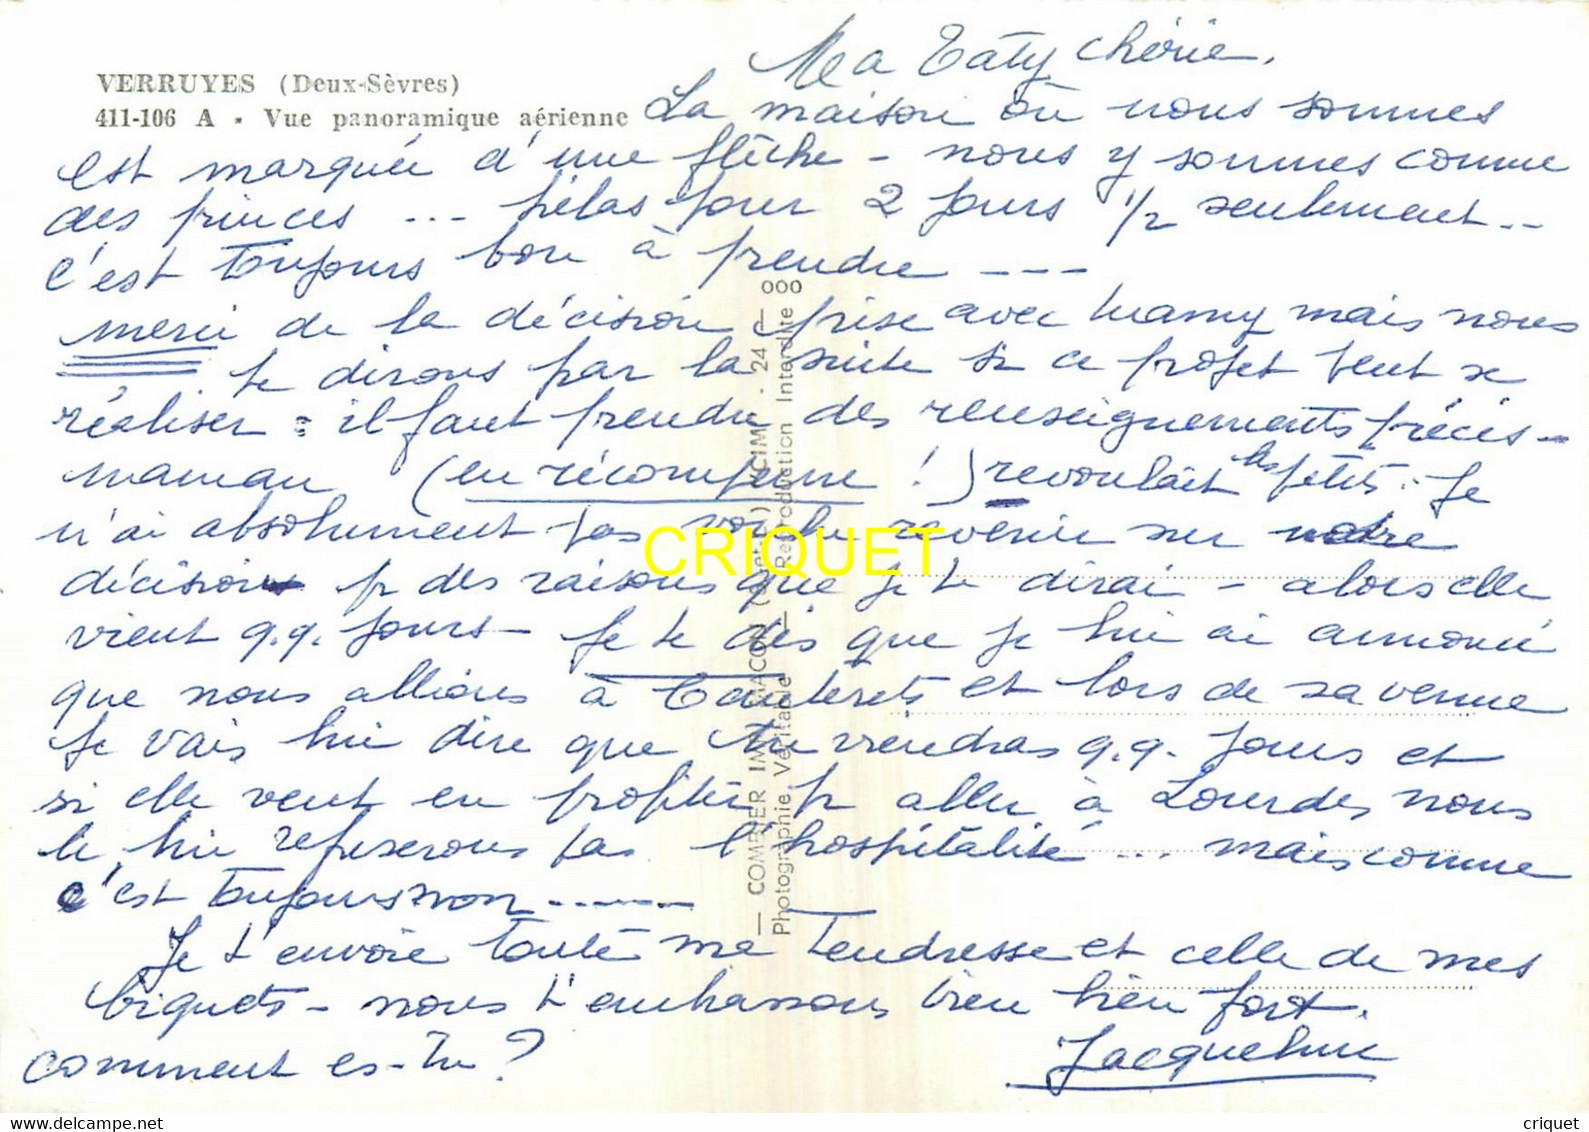 Ma Taty chérie.
VERRUYES (Deux-Sèvres)
411-106 A - Vue panoramique aérienne
La maison où nous sommes
est marquée d'une flèche - nous y sommes comme
des princes ... hélas pour 2 jours 1/2 seulement..
c'est toujours bon à prendre ---
merci de la décision prise avec mamy mais nous
te dirons par la suite si ce projet peut se
réaliser : il faut prendre des renseignements précis -
maman (en récompense !) revoulait les petits. Je
n'ai absolument pas voulu revenir sur notre
décision pr des raisons que je te dirai - alors elle
vient q.q. jours - Je te dis que je lui ai annoncé
que nous allions à Cauterets et lors de sa venue
Je vais lui dire que tu viendras q.q. jours et
si elle veut en profiter pr aller à Lourdes nous
le lui refuserons pas l'hospitalité ... mais comme
c'est toujours non ------
Je t'envoie toute ma tendresse et celle de mes
biquets - nous t'embrassons bien bien fort.
comment es-tu ?
Jacqueline
— COMBIER IMP. MACON (CIM) - 24 —
Photographie Véritable — Reproduction Interdite 000
CRIQUET
delcampe.net
criquet